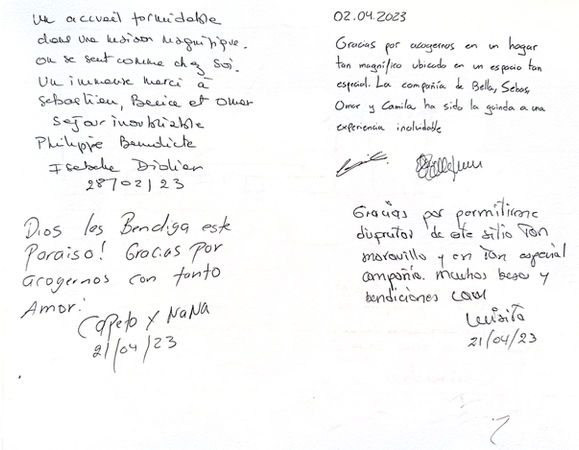 un accueil formidable
dans une maison magnifique.
on se sent comme chez soi.
Un immense merci à
Sebastien, et Omar
Sejour inoubliable
Philippe Benedicte
Isabelle Didier
28/02/23
Dios les Bendiga este
Paraiso! Gracias por
acogernos con tanto
Amor!
Capeto y NaNa
21/04/23
02.04.2023
Gracias por acogernos en un hogar
tan magnífico ubicado en un espacio tan
especial. La compañía de Bella, Sebas,
Omar y Camila ha sido la guinda a una
experiencia inolvidable
Gracias por permitirme
disfrutar de este sitio Tan
maravillo y en Tan especial
compañia. muchos besos y
bendiciones
Luisita
21/04/23